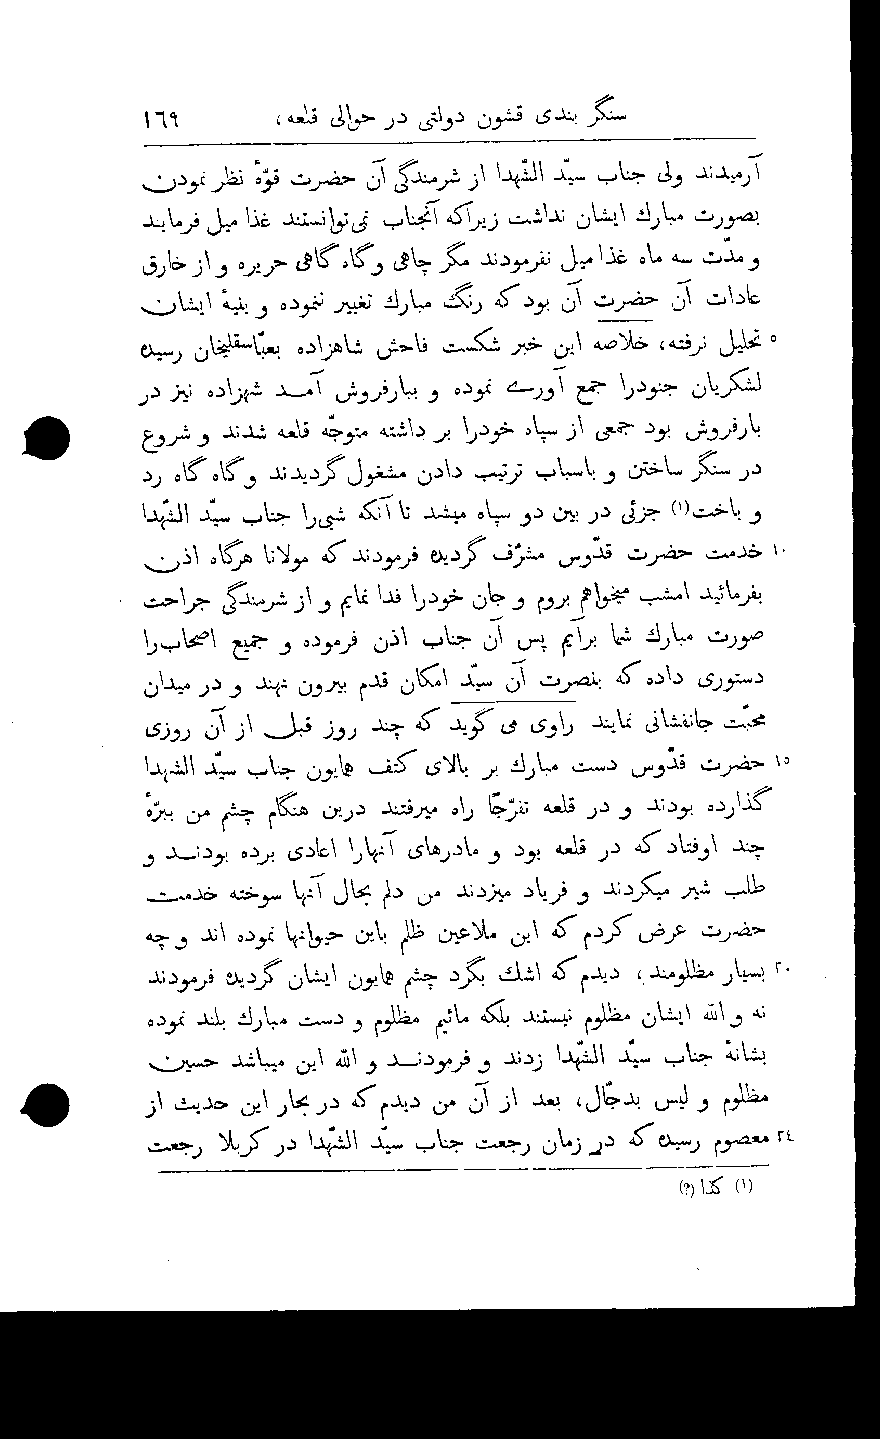 سنگر بندی قشون دولتی در حوالی قلعه، ۱٦۹
آرمیدند ولی جناب سیّد الشّهدا از شرمندگی آن حضرت قوّهٔ نظر نمودن
بصورت مبارك ایشان نداشت زیراکه آنجناب نمی‌توانستند غذا میل فرمایند
و مدّت سه ماه غذا میل نفرمودند مگر چاهی و گاه گاهی حریره و از خارق
عادات آن حضرت آن بود که رنگ مبارك تغییر ننموده و بنیهٔ ایشان
٥ تحلیل نرفته، خلاصه این خبر شکست فاحش شاهزاده بعبّاسقلیخان رسیده
لشکریان جنودرا جمع آوری نموده و ببارفروش آمد شهزاده نیز در
بارفروش بود جمعی از سپاه خودرا بر داشته متوجّه قلعه شدند و شروع
در سنگر ساختن و باسباب ترتیب دادن مشغول گردیدند و گاه گاه رد
و باخت(۱) جزئی در بین دو سپاه میشد تا آنکه شبی‌را جناب سیّد الشّهدا
۱۰ خدمت حضرت قدّوس مشرّف گردیده فرمودند که مولانا هرگاه اذن
بفرمائید امشب میخواهم بروم و جان خودرا فدا نمایم و از شرمندگی جراحت
صورت مبارك شما برآیم پس آن جناب اذن فرموده و جمیع اصحاب‌را
دستوری داده که بنصرت آن سیّد امکان قدم بیرون نهند و در میدان
محبّت جانفشانی نمایند راوی می گوید که چند روز قبل از آن روزی
۱٥ حضرت قدّوس دست مبارك بر بالای کتف همایون جناب سیّد الشهدا
گذارده بودند و در قلعه تفرّجًا راه میرفتند درین هنگام چشم من ببرّهٔ
چند اوفتاد که در قلعه بود و مادرهای آنهارا اعادی برده بودند و
طلب شیر میکردند و فریاد میزدند من دلم بحال آنها سوخته خدمت
حضرت عرض کردم که این ملاعین ظلم باین حیوانها نموده اند و چه
۲۰ بسیار مظلومند، دیدم که اشك بگرد چشم همایون ایشان گردیده فرمودند
نه و الله ایشان مظلوم نیستند بلکه مائیم مظلوم و دست مبارك بلند نموده
بشانهٔ جناب سیّد الشّهدا زدند و فرمودند و الله این میباشد حسین
مظلوم و لیس بدجّال، بعد از آن من دیدم که در بحار این حدیث از
۲٤ معصوم رسیده که در زمان رجعت جناب سیّد الشّهدا در کربلا رجعت
(۱) کذا (؟)